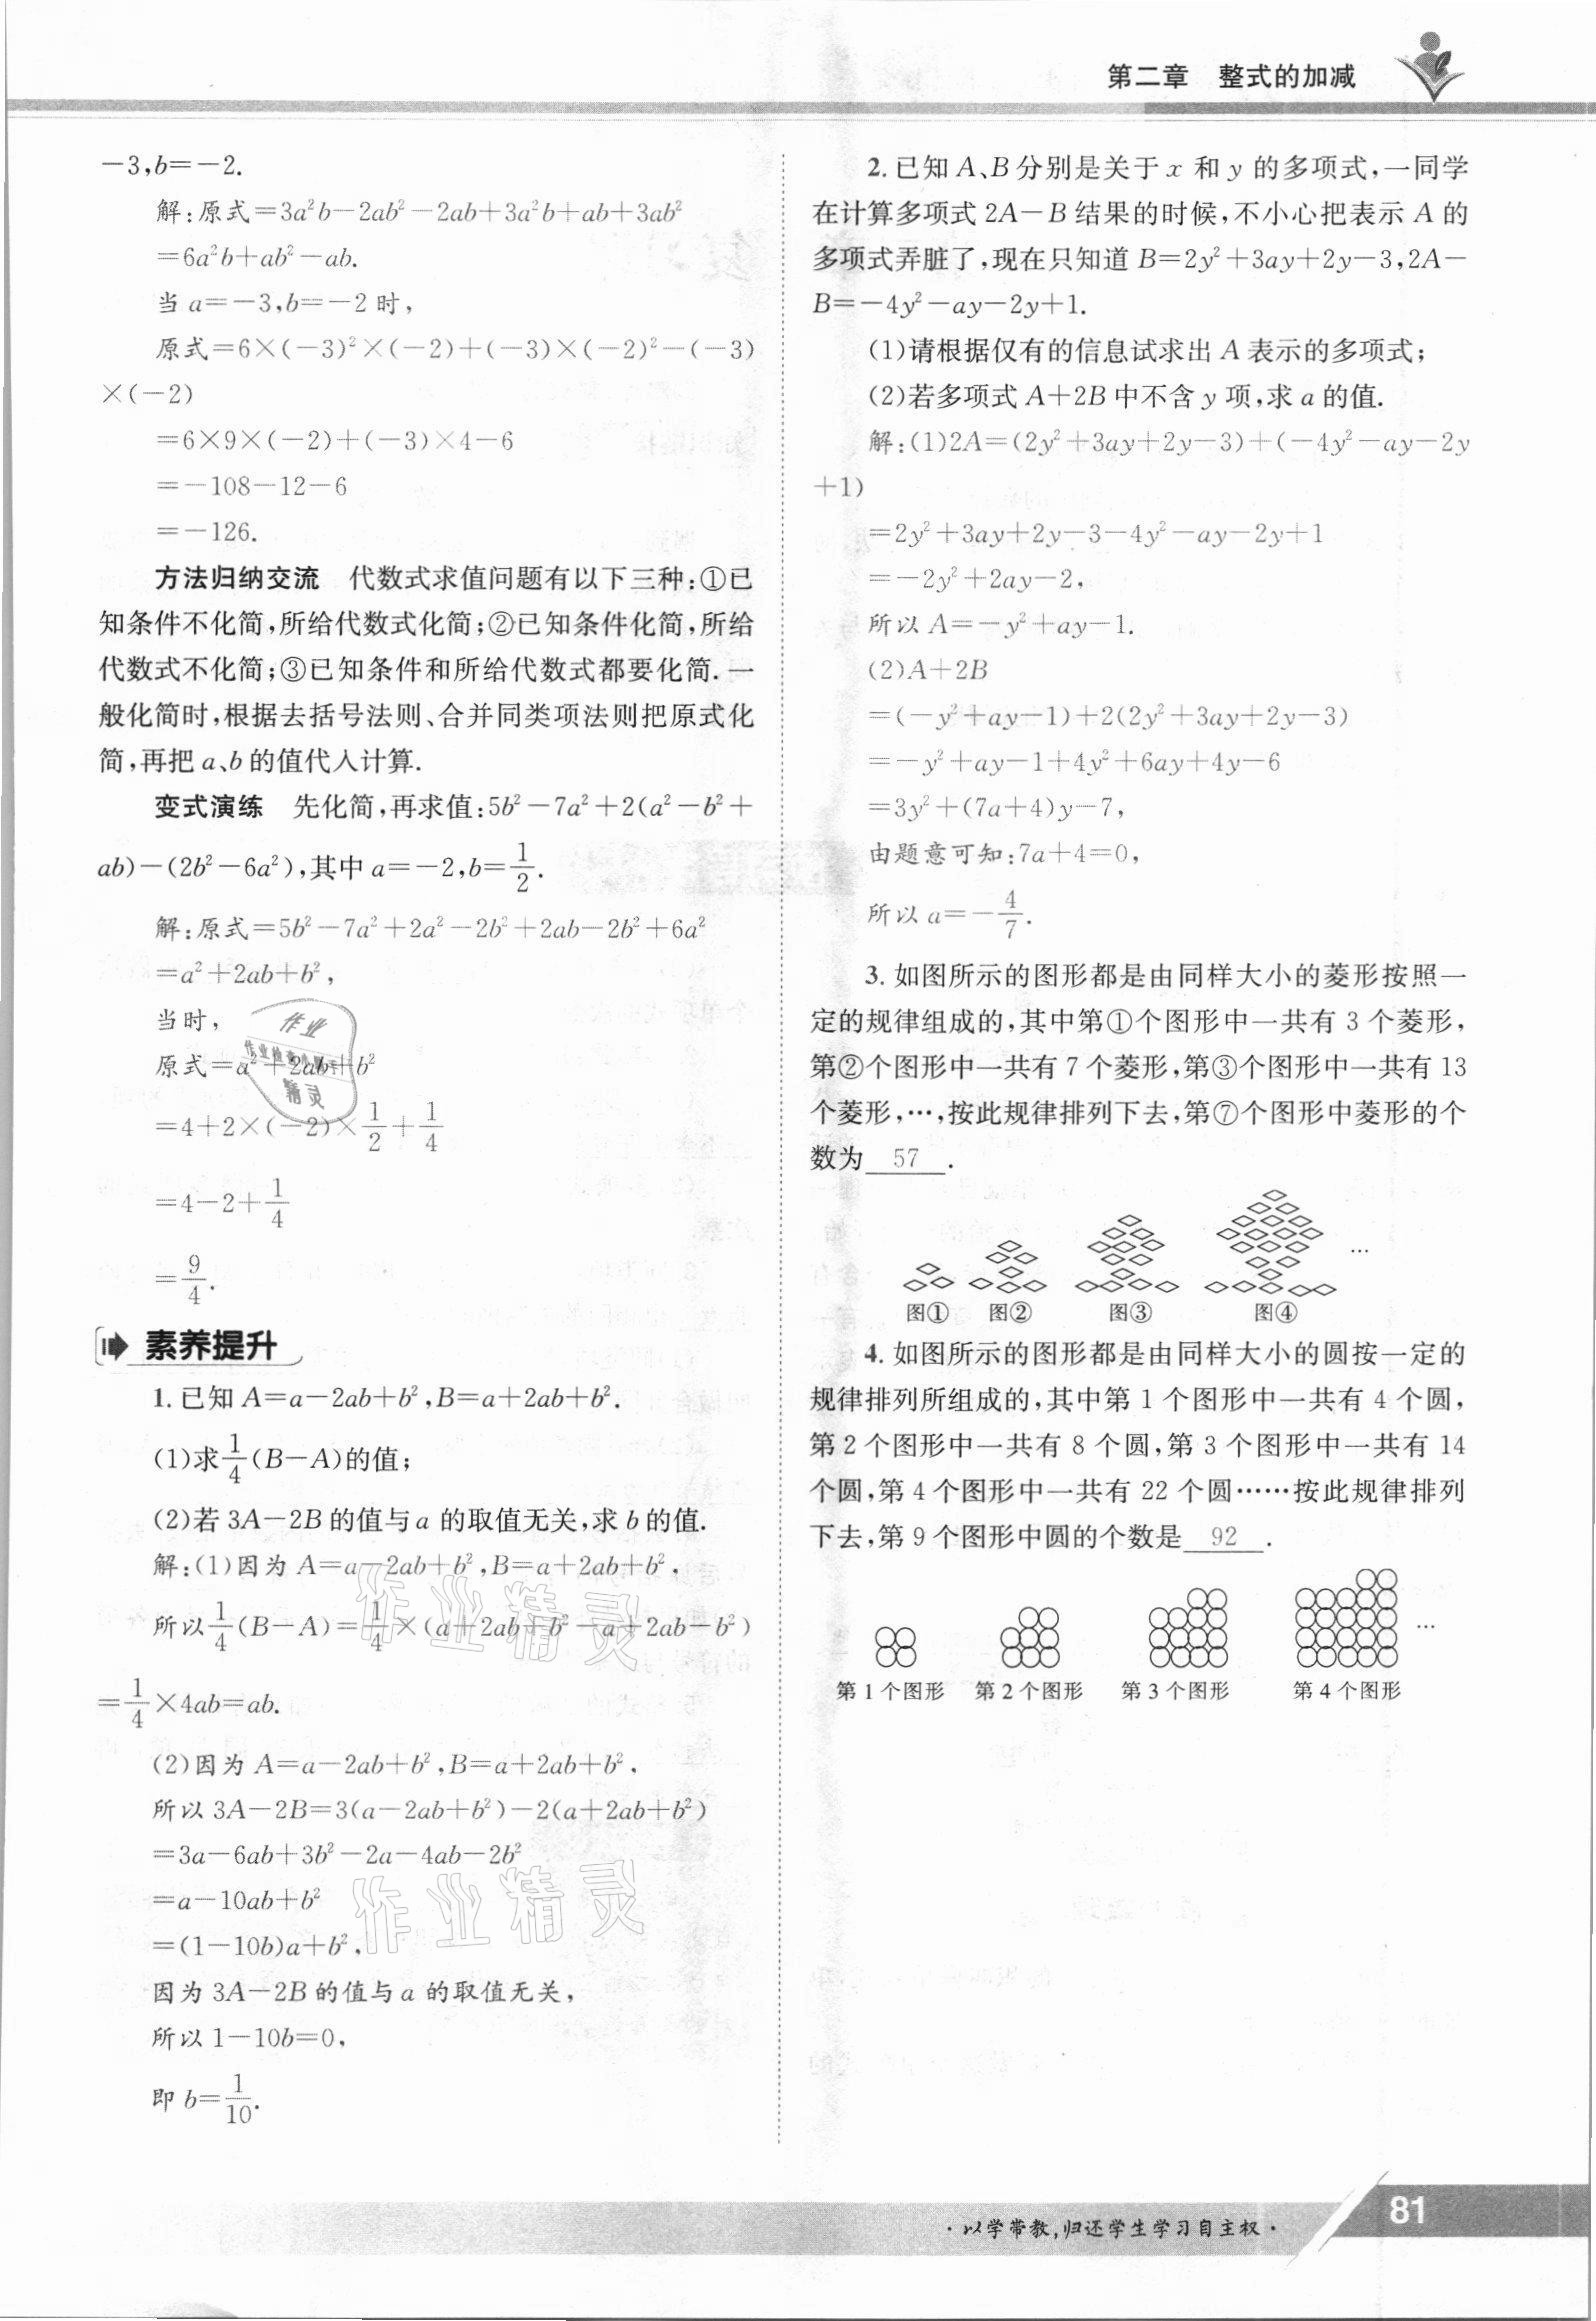 第二章 整式的加减
-3,b=-2.
解:原式=3a²b-2ab²-2ab+3a²b+ab+3ab²
=6a²b+ab²-ab.
当 a=-3,b=-2 时,
原式=6×(-3)²×(-2)+(-3)×(-2)²-(-3)
×(-2)
=6×9×(-2)+(-3)×4-6
=-108-12-6
=-126.
方法归纳交流 代数式求值问题有以下三种:①已
知条件不化简,所给代数式化简;②已知条件化简,所给
代数式不化简;③已知条件和所给代数式都要化简.一
般化简时,根据去括号法则、合并同类项法则把原式化
简,再把 a、b 的值代入计算.
变式演练 先化简,再求值:5b²-7a²+2(a²-b²+
ab)-(2b²-6a²),其中 a=-2,b=1/2.
解:原式=5b²-7a²+2a²-2b²+2ab-2b²+6a²
=a²+2ab+b²,
当时,
原式=a²+2ab+b²
=4+2×(-2)×1/2+1/4
=4-2+1/4
=9/4.
素养提升
1.已知 A=a-2ab+b²,B=a+2ab+b².
(1)求1/4(B-A)的值;
(2)若 3A-2B 的值与 a 的取值无关,求 b 的值.
解:(1)因为 A=a-2ab+b²,B=a+2ab+b²,
所以1/4(B-A)=1/4×(a+2ab+b²-a+2ab-b²)
=1/4×4ab=ab.
(2)因为 A=a-2ab+b²,B=a+2ab+b²,
所以 3A-2B=3(a-2ab+b²)-2(a+2ab+b²)
=3a-6ab+3b²-2a-4ab-2b²
=a-10ab+b²
=(1-10b)a+b²,
因为 3A-2B 的值与 a 的取值无关,
所以 1-10b=0,
即 b=1/10.
2.已知 A、B 分别是关于 x 和 y 的多项式,一同学
在计算多项式 2A-B 结果的时候,不小心把表示 A 的
多项式弄脏了,现在只知道 B=2y²+3ay+2y-3,2A-
B=-4y²-ay-2y+1.
(1)请根据仅有的信息试求出 A 表示的多项式;
(2)若多项式 A+2B 中不含 y 项,求 a 的值.
解:(1)2A=(2y²+3ay+2y-3)+(-4y²-ay-2y
+1)
=2y²+3ay+2y-3-4y²-ay-2y+1
=-2y²+2ay-2,
所以 A=-y²+ay-1.
(2)A+2B
=(-y²+ay-1)+2(2y²+3ay+2y-3)
=-y²+ay-1+4y²+6ay+4y-6
=3y²+(7a+4)y-7,
由题意可知:7a+4=0,
所以 a=-4/7.
3.如图所示的图形都是由同样大小的菱形按照一
定的规律组成的,其中第①个图形中一共有 3 个菱形,
第②个图形中一共有 7 个菱形,第③个图形中一共有 13
个菱形,…,按此规律排列下去,第⑦个图形中菱形的个
数为 57 .
…
图① 图② 图③ 图④
4.如图所示的图形都是由同样大小的圆按一定的
规律排列所组成的,其中第 1 个图形中一共有 4 个圆,
第 2 个图形中一共有 8 个圆,第 3 个图形中一共有 14
个圆,第 4 个图形中一共有 22 个圆……按此规律排列
下去,第 9 个图形中圆的个数是 92 .
…
第 1 个图形 第 2 个图形 第 3 个图形 第 4 个图形
作业
精灵
作业精灵
作业精灵
·以学带教,归还学生学习自主权·
81